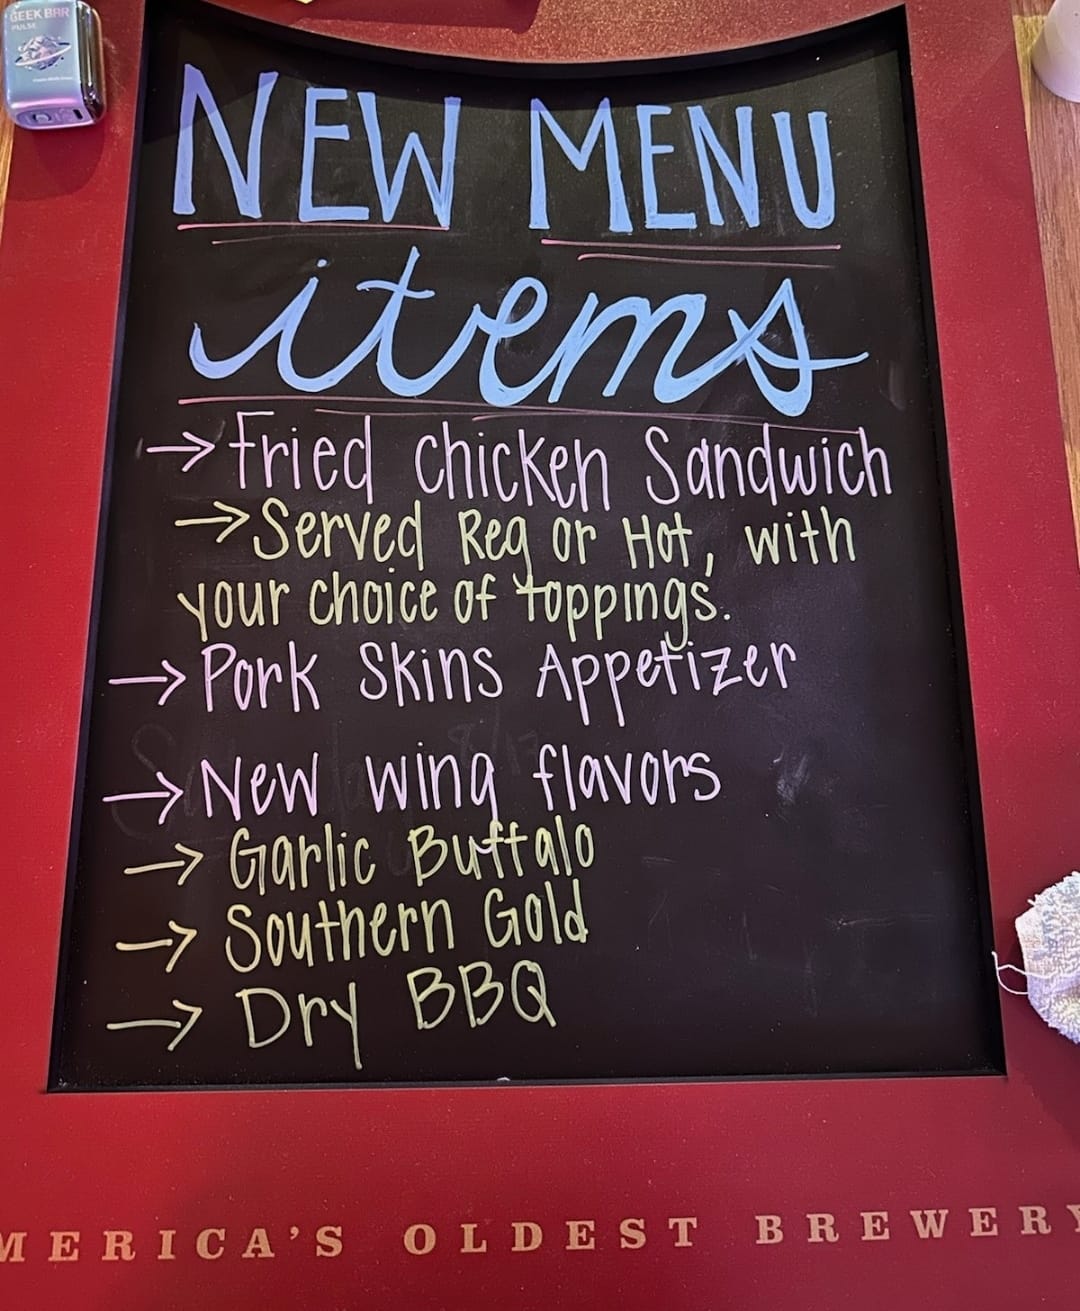 GEEK BAR
PULSE
NEW MENU
items
→ Fried Chicken Sandwich
→ Served Reg or Hot, with
your choice of toppings.
→ Pork Skins Appetizer
→ New wing flavors
→ Garlic Buffalo
→ Southern Gold
→ Dry BBQ
MERICA'S OLDEST BREWERY